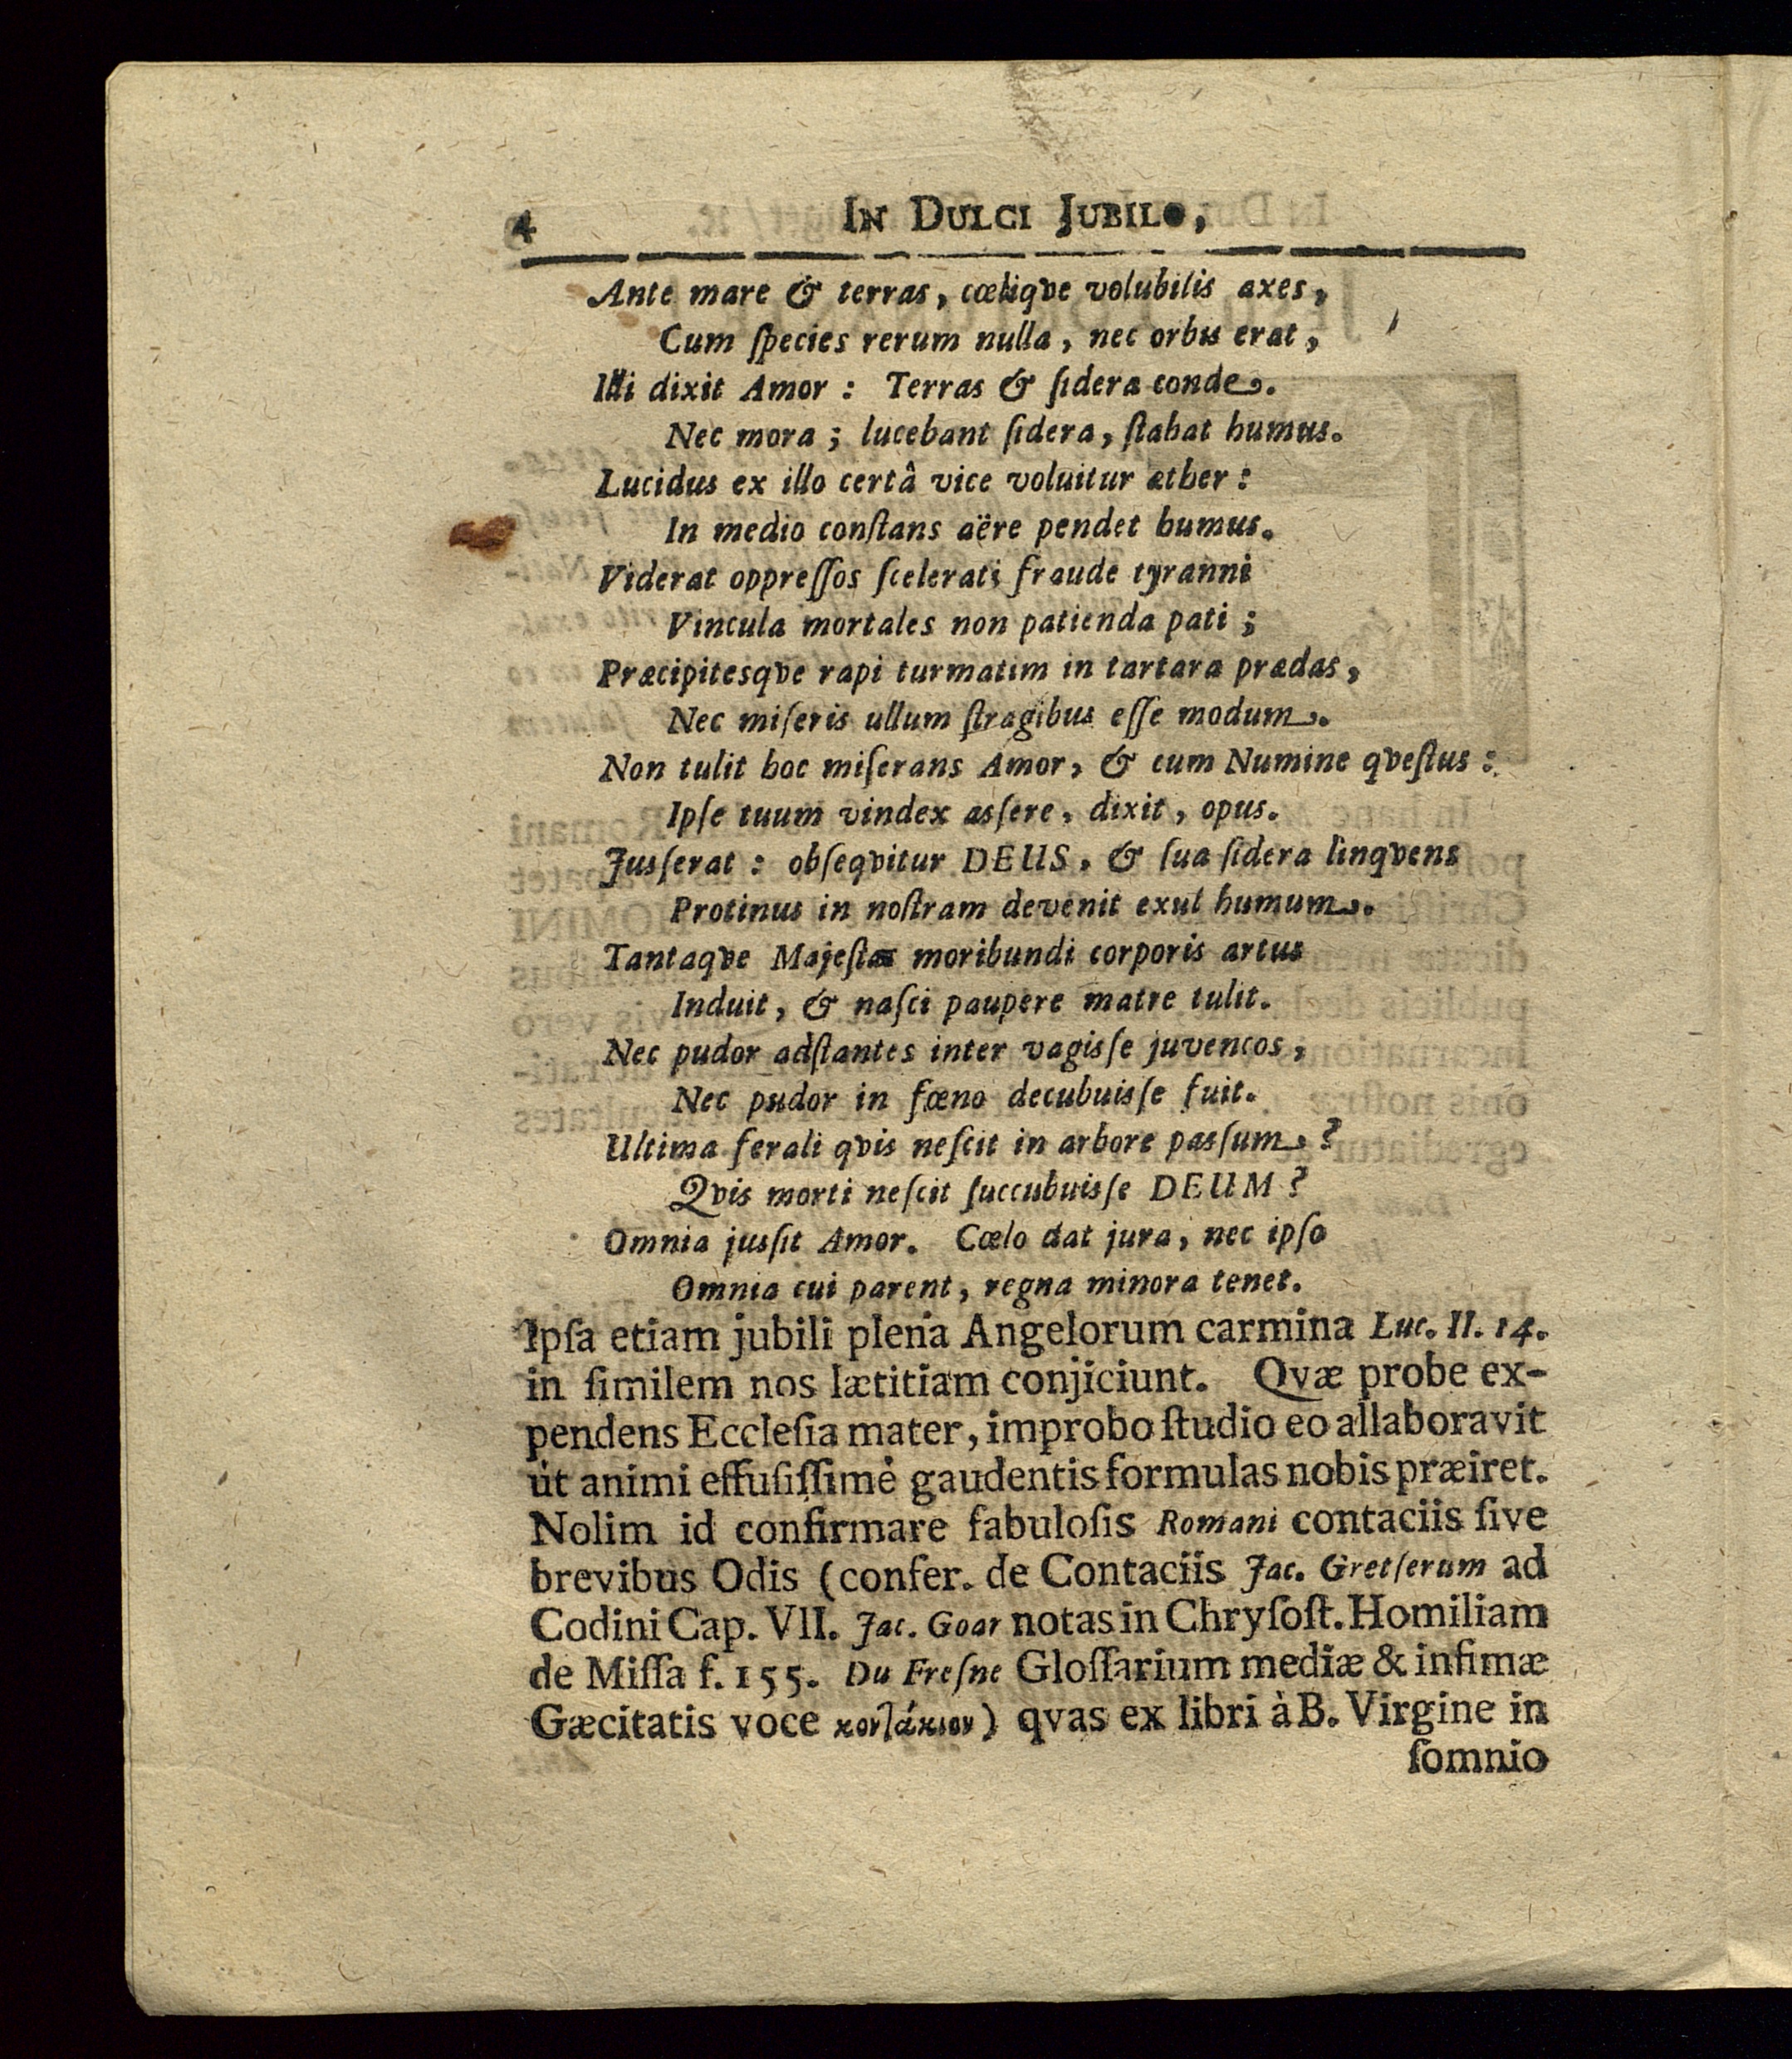 4 IN DULCI JUBILO,
Ante mare & terras, cœliqve volubilis axes,
Cum ſpecies rerum nulla, nec orbis erat,
Illi dixit Amor: Terras & ſidera conde.
Nec mora; lucebant ſidera, ſtabat humus.
Lucidus ex illo certâ vice voluitur æther:
In medio conſtans aëre pendet humus.
Viderat oppreſſos ſcelerati fraude tyranni
Vincula mortales non patienda pati;
Præcipitesqve rapi turmatim in tartara prædas,
Nec miſeris ullum ſtragibus eſſe modum.
Non tulit hoc miſerans Amor, & cum Numine qveſtus:
Ipſe tuum vindex asſere, dixit, opus.
Jusſerat: obſeqvitur DEUS, & ſua ſidera linqvens
Protinus in noſtram devenit exul humum.
Tantaqve Majeſtas moribundi corporis artus
Induit, & naſci paupere matre tulit.
Nec pudor adſtantes inter vagisſe juvencos,
Nec pudor in fœno decubuisſe fuit.
Ultima ferali qvis neſcit in arbore pasſum?
Qvis morti neſcit ſuccubuisſe DEUM?
Omnia jusſit Amor. Cœlo dat jura, nec ipſo
Omnia cui parent, regna minora tenet.
Ipſa etiam jubili plena Angelorum carmina Luc. II. 14.
in ſimilem nos lætitiam conjiciunt. Qvæ probe ex-
pendens Eccleſia mater, improbo ſtudio eo allaboravit
ut animi effuſiſſimè gaudentis formulas nobis præiret.
Nolim id confirmare fabuloſis Romani contaciis ſive
brevibus Odis (confer. de Contaciis Jac. Gretſerum ad
Codini Cap. VII. Jac. Goar notas in Chryſoſt. Homiliam
de Miſſa f. 155. Du Freſne Gloſſarium mediæ & infimæ
Gæcitatis voce κοντάκιον) qvas ex libri à B. Virgine in
ſomnio